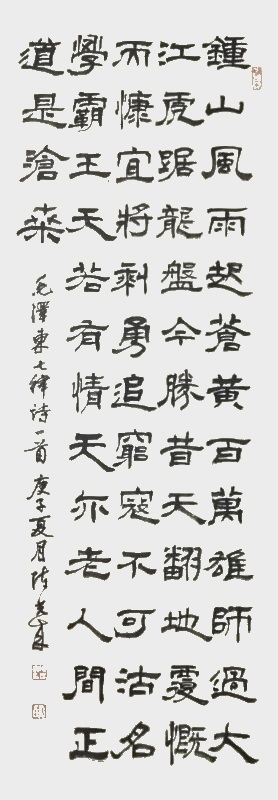 鍾山風雨起蒼黃百萬雄師過大
江虎踞龍盤今勝昔天翻地覆慨
而慷宜將剩勇追窮寇不可沽名
學霸王天若有情天亦老人間正
道是滄桑
毛澤東七律诗一首 庚子夏月